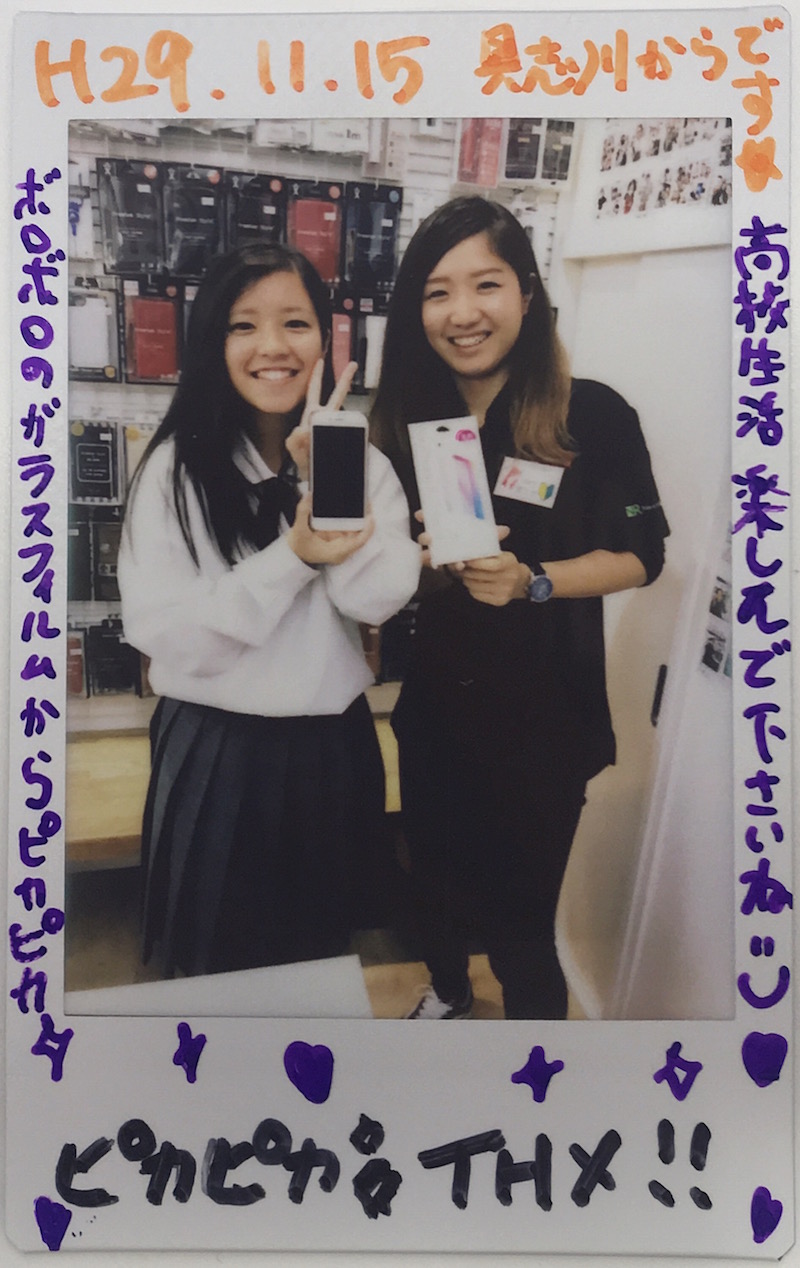 H29.11.15 具志川からです
ボロボロのガラスフィルムからピカピカ
高校生活 楽しんで下さいね
ピカピカ THX!!